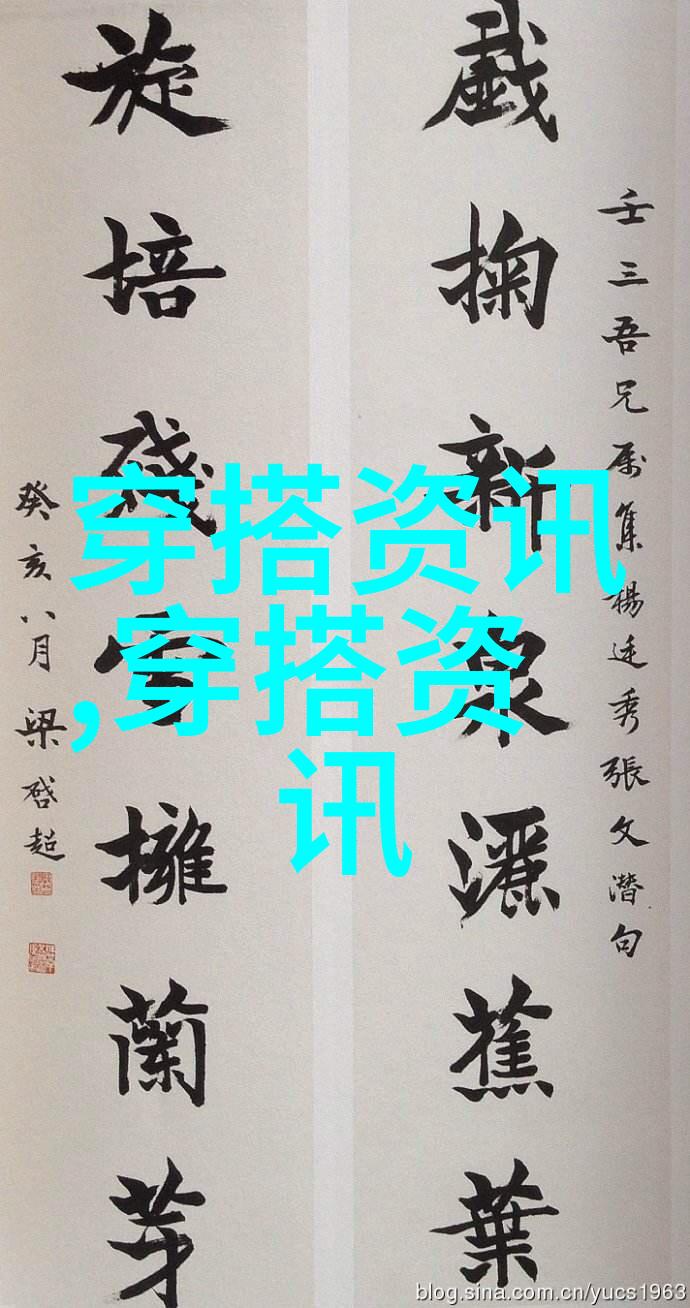 壬三吾兄属集楊廷秀張文潛句
戲掬新泉灑蕉葉
旋培殘雪擁蘭芽
癸亥八月梁啓超
穿搭资讯
,穿搭资
讯
blog.sina.com.cn/yucs1963